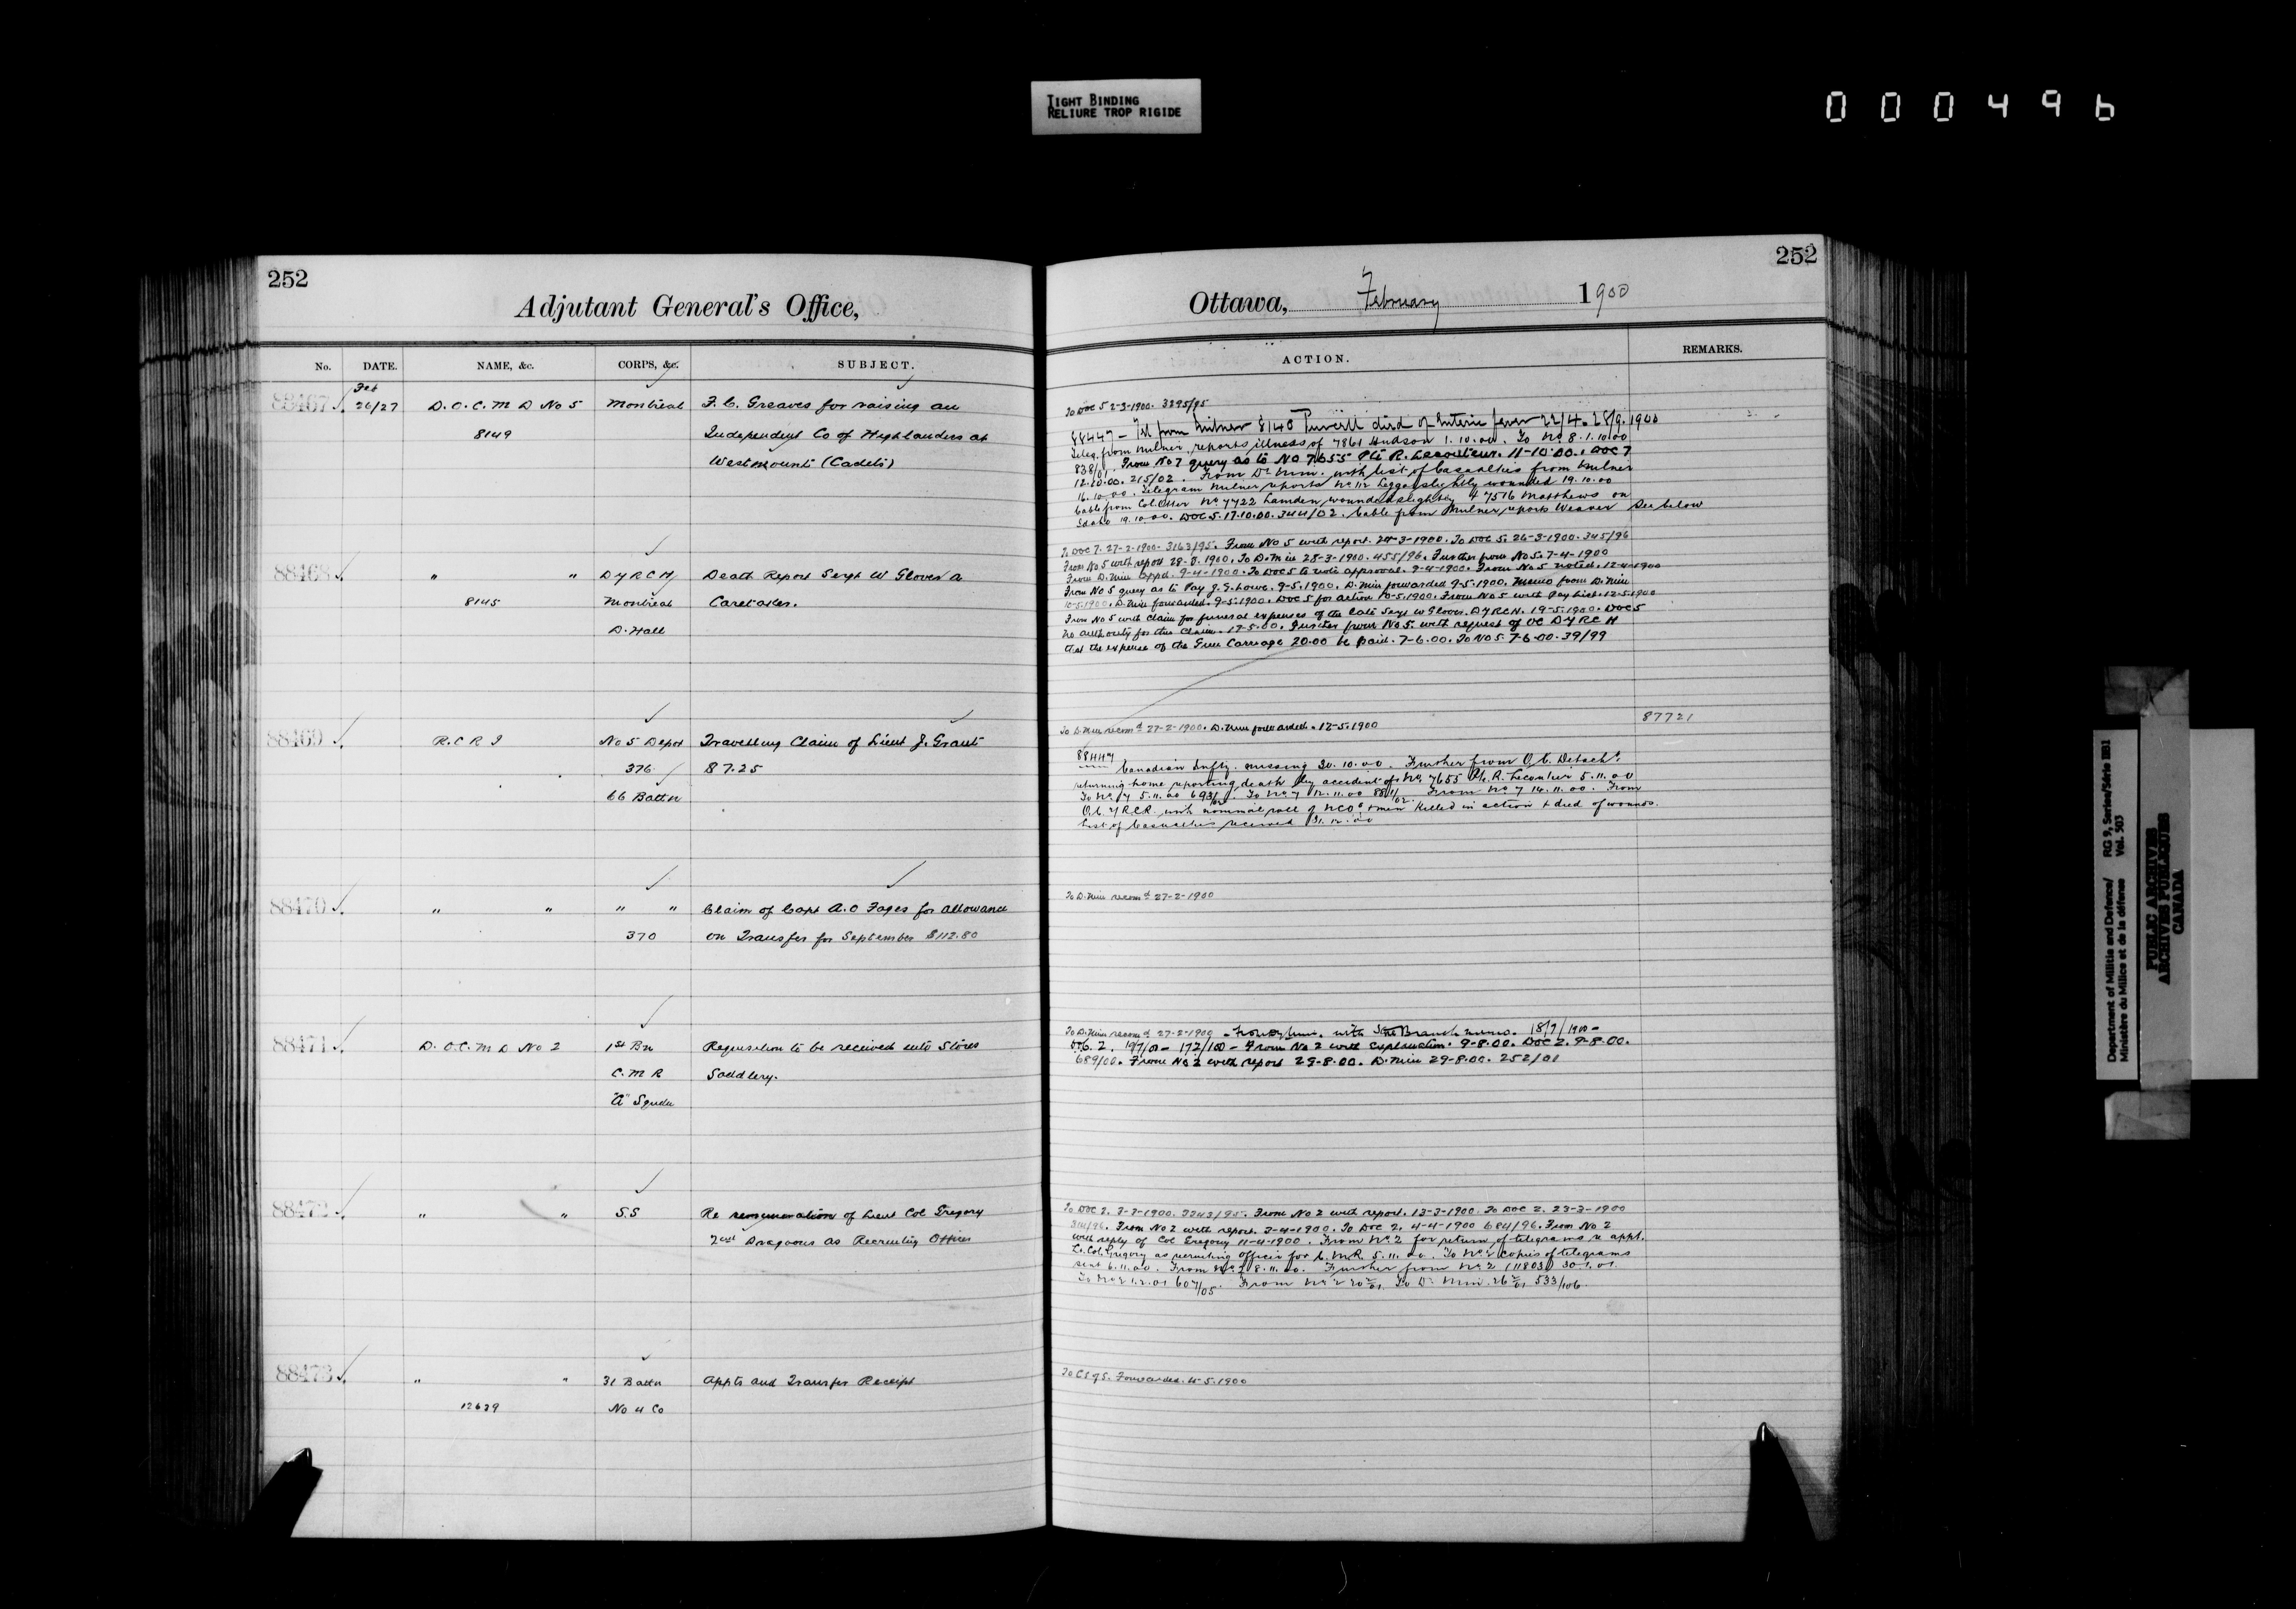 TIGHT BINDING
RELIURE TROP RIGIDE
000496
252
Adjutant General's Office,
No. DATE. NAME, &c. CORPS, &c. SUBJECT.
Feb
88467 26/27 D.O.C. M D No 5 Montreal F. C. Greaves for raising an
8149 Independent Co of Highlanders at
Westmount (Cadets)
88468 " " D Y R C H Death Report Sergt W Glover a
8145 Montreal Caretaker.
D. Hall
88469 R.C.R.I No 5 Depot Travelling Claim of Lieut J. Grant
376 87.25
66 Battn
88470 " " " " Claim of Capt A.O Fages for allowance
370 on Transfer for September $112.80
88471 D.O.C. M D No 2 1st Bn Requisition to be received into Stores
C.M R Saddlery.
"A" Sqdn
88472 " " S.S Re remuneration of Lieut Col Gregory
2nd Dragoons as Recruiting Officer
88473 " " 31 Battn Appts and Transfer Receipt
12639 No 4 Co
252
Ottawa, February 1900
ACTION. REMARKS.
To DOC 5 2-3-1900. 3295/95
88447 - Tel from Milner 8140 Purcell died of Enteric fever 22/4. 28/9.1900
Teleg. from Milner, reports illness of 7861 Hudson 1.10.00. To No 8. 1.10.00
838/01. From No 7 query as to No 7655 Pte R. Lecouteur. 11-10-00. DOC 7
12.10.00. 215/02. From Dr Min. with list of Casualties from Milner
16.10.00. Telegram Milner reports No 112 slightly wounded 19.10.00
Cable from Col. Otter No 7722 Lamden wounded slightly & 7516 Matthews on
Idaho 19.10.00. DOC 5. 17.10.00. 344/02. Cable from Milner, reports Weaver See below
To DOC 7. 27-2-1900. 3163/95. From No 5 with report. 24-3-1900. To DOC 5. 26-3-1900. 345/96
From No 5 with report 28-3.1900. To D. Min 28-3-1900. 455/96. Further from No 5. 7-4-1900
From D. Min appd. 9-4-1900. To DOC 5 to note approval. 9-4-1900. From No 5 noted. 12-4-1900
From No 5 query as to Pay J. G. Lowe. 9-5.1900. D. Min forwarded 9-5.1900. Memo from D. Min
10-5.1900. D. Min forwarded. 9-5.1900. DOC 5 for action 10-5.1900. From No 5 with Pay list. 12-5.1900
From No 5 with claim for funeral expenses of the late Sergt W Glover. DYRCH. 19-5.1900. DOC 5
no authority for this claim. 17-5.00. Further from No 5. with request of OC DYRCH
that the expense of the Gun Carriage 20.00 be paid. 7-6.00. To No 5. 7-6-00. 39/99
To D. Min recomd 27-2-1900. D. Min forwarded. 12-5.1900 87721
88447
Canadian Infty. missing 20.10.00. Further from O.C. Detacht
returning home reporting death by accident of No. 7655 Pte. R. Lecouteur 5.11.00
To No. 7 5.11.00 693/02. To No 7 12.11.00 88/02. From No 7 14.11.00. From
O.C. 7 R.C.R. with nominal roll of NCOs & men killed in action & died of wounds.
List of Casualties received 31.12.00
To D. Min recomd 27-2-1900
To D. Min recomd 27-2-1900 - From Dy Min. with Store Branch memo. 18/7/1900 -
DOC. 2. 19/7/00 - 172/100 - From No 2 with explanation. 9-8.00. DOC 2. 9-8-00.
689/00. From No 2 with report 29-8.00. D. Min 29-8.00. 252/01
To DOC 2. 3-3-1900. 3243/95. From No 2 with report. 13-3-1900. To DOC 2. 23-3-1900
314/96. From No 2 with report. 3-4-1900. To DOC 2. 4-4-1900 684/96. From No 2
with reply of Col Gregory 11-4-1900. From No. 2 for return of telegrams re appt.
Lt. Col. Gregory as recruiting officer for C.M.R. 5.11.00. To No 2 copies of telegrams
sent 6.11.00. From No. 2 8.11.00. Further from No 2 (11803) 30.1.01.
To No 2 1.2.01 607/05. From No 2 20 2/01. To Dr Min. 26 2/01 533/106.
To C S of S. Forwarded. 4-5.1900
Department of Militia and Defence/ RG 9, Series/Série IIB1
Ministère du Milice et de la défense Vol. 503
PUBLIC ARCHIVES
ARCHIVES PUBLIQUES
CANADA